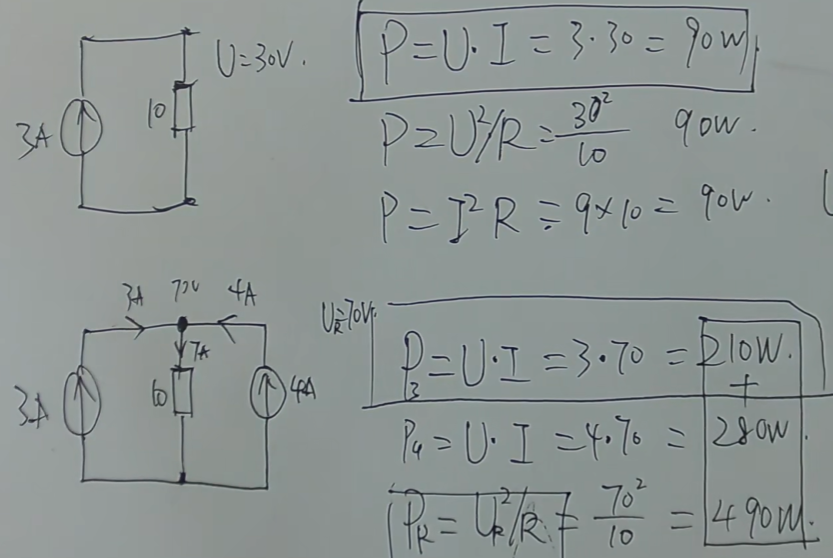 U=30V.
3A
10
P=U·I=3·30=90W.
P=U²/R=30²/10 90W.
P=I²R=9×10=90W.
3A 70V 4A
7A
3A
10
4A
U_R=70V.
P₃=U·I=3·70=210W.
+
P₄=U·I=4·70=280W.
P_R=U_R²/R=70²/10=490W.